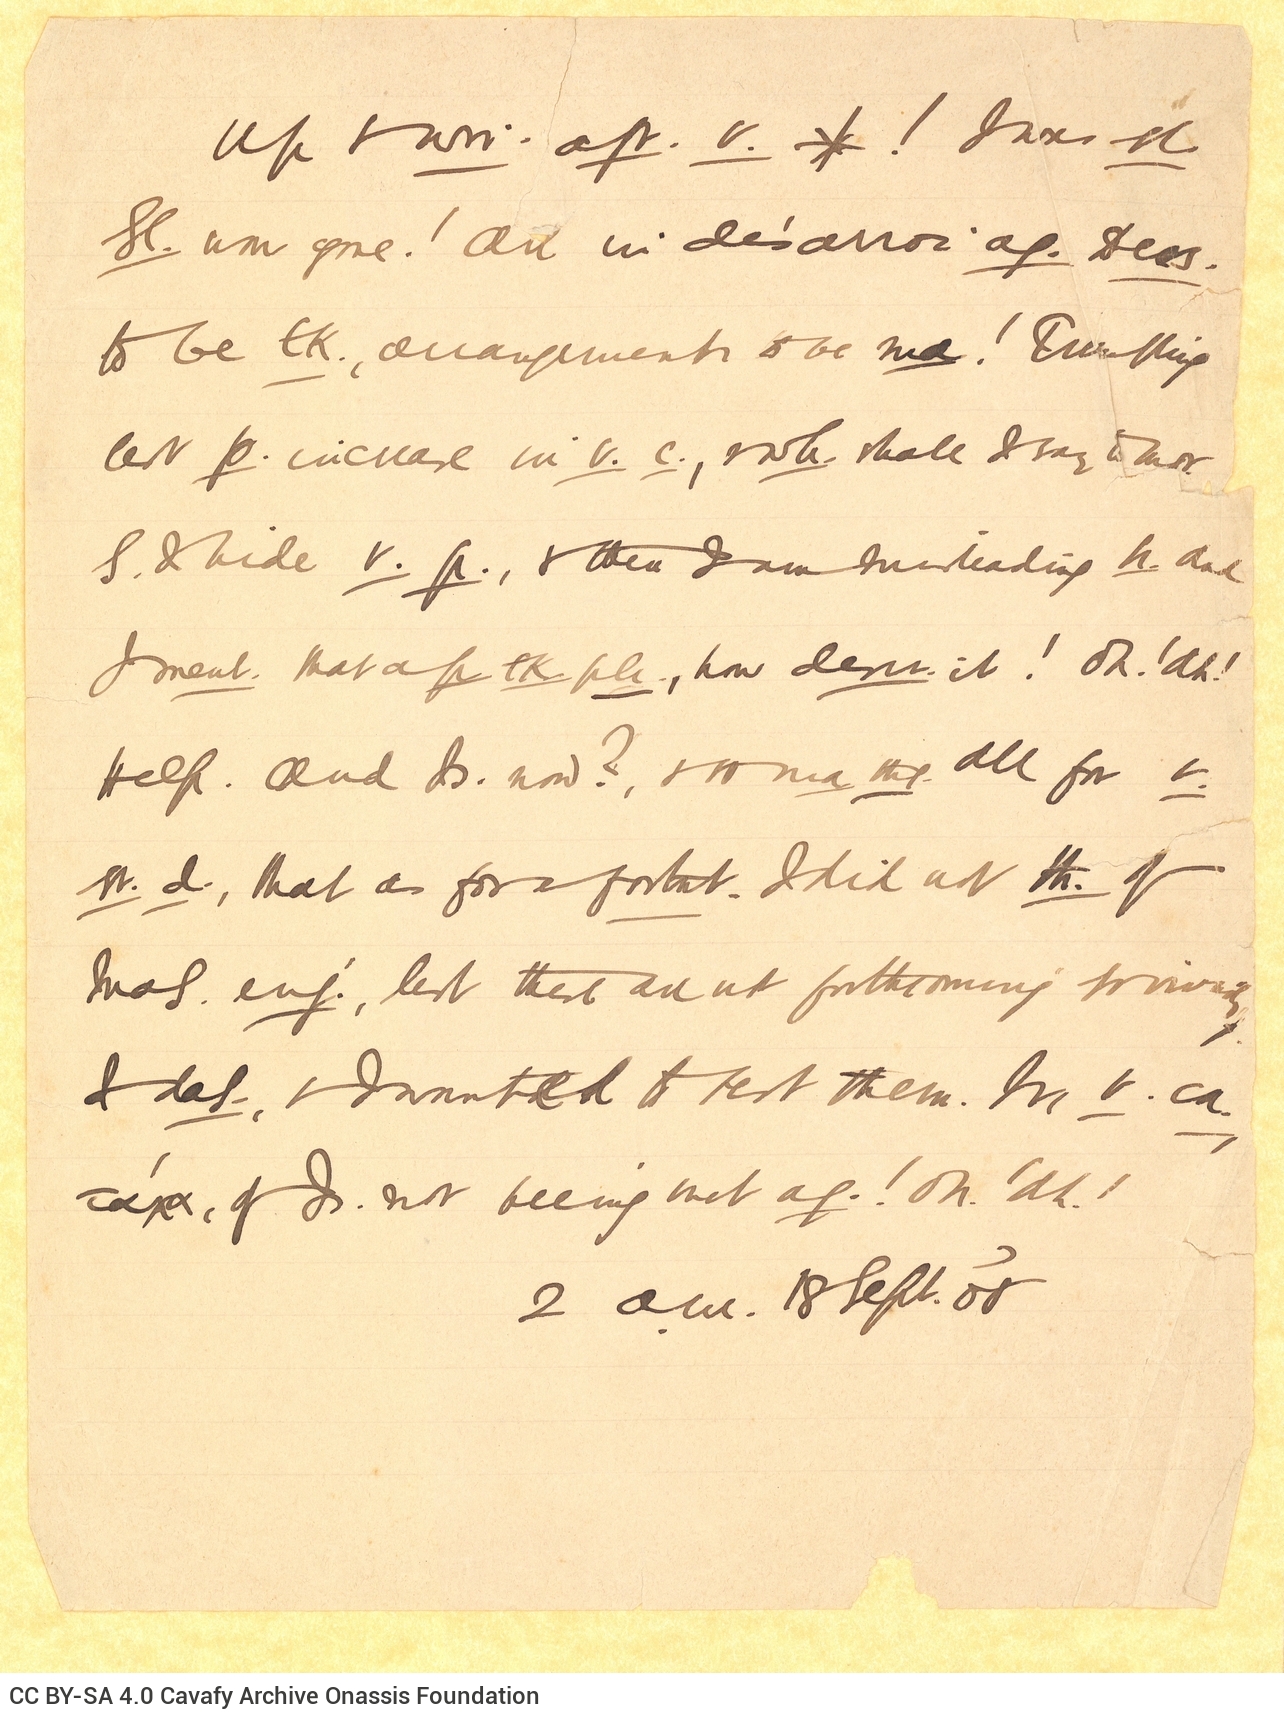 Up & wri. aft. v. ! I was st.
Sl. now gone! All in désarroi ag. Decs.
to be tk., arrangements to be ma! Trembling
lest p. increase in v. c., & wh. shall I say to mor.
S. I hide v. p., & then I am misleading h. And
I ment. that a p tk pla., how descr. it! Oh! Ah!
Help. And Is. now?, & to ma the. all for v.
st. d., that as for a fortnt. I did not th. of
Mas. eng., lest these are not forthcoming
I das., & I wanted to test them. In v. ca.,
τάχα, of Is. not being met ag.! Oh! Ah!
2 a.m. 18 Sept.
CC BY-SA 4.0 Cavafy Archive Onassis Foundation